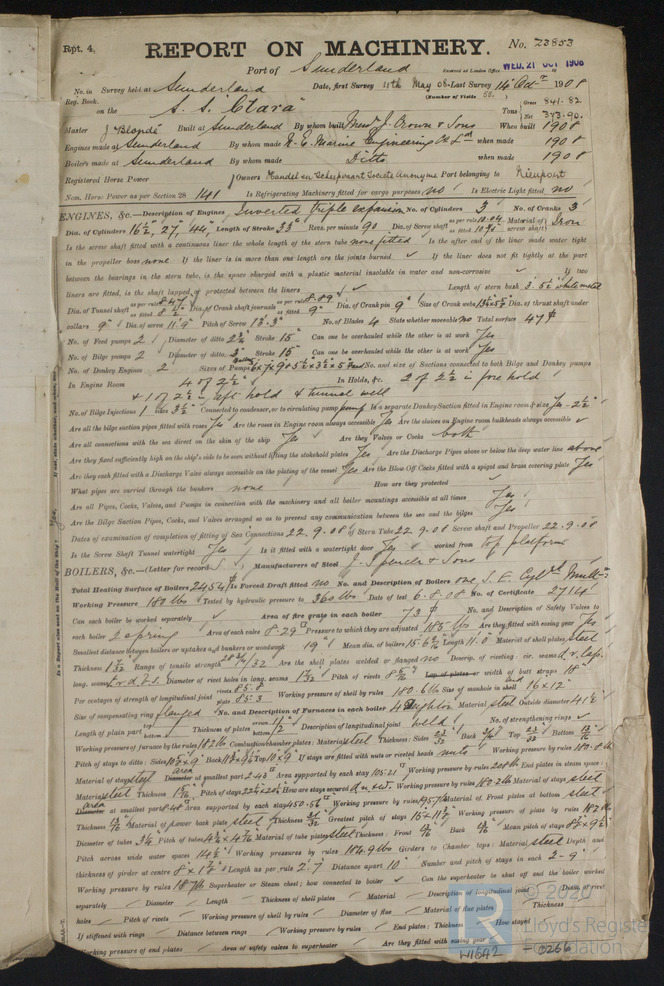 Rpt. 4.
REPORT ON MACHINERY. No. 23853
Port of Sunderland Received at London Office WED. 21 OCT 1908
No. in Survey held at Sunderland Date, first Survey 11th May 08 Last Survey 14 Octr 1908
Reg. Book. (Number of Visits 50.)
on the S.S. "Clara" Tons Gross 841.82 Net 373.90
Master J Blondé Built at Sunderland By whom built Messrs J. Crown & Sons When built 1908
Engines made at Sunderland By whom made N. E. Marine Engineering Co Ld when made 1908
Boilers made at Sunderland By whom made Ditto when made 1908
Registered Horse Power Owners Handel en Scheepvaart Societe Anonyme Port belonging to Nieuport
Nom. Horse Power as per Section 28 141 Is Refrigerating Machinery fitted for cargo purposes no Is Electric Light fitted no
ENGINES, &c.—Description of Engines Inverted triple expansion No. of Cylinders 3 No. of Cranks 3
Dia. of Cylinders 16½", 27", 44" Length of Stroke 33" Revs. per minute 90 Dia. of Screw shaft as per rule 10.04 as fitted Material of screw shaft Iron
Is the screw shaft fitted with a continuous liner the whole length of the stern tube none fitted Is the after end of the liner made water tight
in the propeller boss none If the liner is in more than one length are the joints burned ✓ If the liner does not fit tightly at the part
between the bearings in the stern tube, is the space charged with a plastic material insoluble in water and non-corrosive ✓ If two
liners are fitted, is the shaft lapped or protected between the liners ✓ Length of stern bush 3'-5½" white metal
Dia. of Tunnel shaft as per rule 8.47 as fitted 8½" Dia. of Crank shaft journals as per rule 8.89" as fitted 9" Dia. of Crank pin 9" Size of Crank webs Dia. of thrust shaft under
collars 9" Dia. of screw 11'.9" Pitch of Screw 13'.3" No. of Blades 4 State whether moveable no Total surface 47
No. of Feed pumps 2 Diameter of ditto 2¾" Stroke 15" Can one be overhauled while the other is at work Yes
No. of Bilge pumps 2 Diameter of ditto 3" Stroke 15" Can one be overhauled while the other is at work Yes
No. of Donkey Engines 2 Sizes of Pumps No. and size of Suctions connected to both Bilge and Donkey pumps
In Engine Room 4 of 2½" In Holds, &c. 2 of 2½ in fore hold
+ 1 of 2½ in aft hold & tunnel well
No. of Bilge Injections 1 sizes 3½" Connected to condenser, or to circulating pump pump Is a separate Donkey Suction fitted in Engine room & size Yes - 2½"
Are all the bilge suction pipes fitted with roses Yes Are the roses in Engine room always accessible Yes Are the sluices on Engine room bulkheads always accessible ✓
Are all connections with the sea direct on the skin of the ship Yes Are they Valves or Cocks both
Are they fixed sufficiently high on the ship's side to be seen without lifting the stokehold plates Yes Are the Discharge Pipes above or below the deep water line above
Are they each fitted with a Discharge Valve always accessible on the plating of the vessel Yes Are the Blow Off Cocks fitted with a spigot and brass covering plate Yes
What pipes are carried through the bunkers none How are they protected ✓
Are all Pipes, Cocks, Valves, and Pumps in connection with the machinery and all boiler mountings accessible at all times Yes
Are the Bilge Suction Pipes, Cocks, and Valves arranged so as to prevent any communication between the sea and the bilges Yes
Dates of examination of completion of fitting of Sea Connections 22.9.08 of Stern Tube 22.9.08 Screw shaft and Propeller 22.9.08
Is the Screw Shaft Tunnel watertight Yes Is it fitted with a watertight door Yes worked from top platform
BOILERS, &c.—(Letter for record S) Manufacturers of Steel J. Spencer & Sons
Total Heating Surface of Boilers 2454 Is Forced Draft fitted no No. and Description of Boilers one S. E. Cyl Mult
Working Pressure 180 lbs Tested by hydraulic pressure to 360 lbs Date of test 6.8.08 No. of Certificate 2714
Can each boiler be worked separately ✓ Area of fire grate in each boiler 73 No. and Description of Safety Valves to
each boiler 2 spring Area of each valve 8.29 Pressure to which they are adjusted 185 lbs Are they fitted with easing gear Yes
Smallest distance between boilers or uptakes and bunkers or woodwork 19" Mean dia. of boilers Length 11.0 Material of shell plates steel
Thickness Range of tensile strength Are the shell plates welded or flanged no Descrip. of riveting: cir. seams d.r. lap.
long. seams Diameter of rivet holes in long. seams Pitch of rivets Lap of plates or width of butt straps
Per centages of strength of longitudinal joint rivets 85.8 plate 85.3 Working pressure of shell by rules 180.6 lb Size of manhole in shell 16 x 12"
Size of compensating ring flanged No. and Description of Furnaces in each boiler 4 Deighton Material steel Outside diameter 41½"
Length of plain part top bottom Thickness of plates crown bottom Description of longitudinal joint weld No. of strengthening rings ✓
Working pressure of furnace by the rules 182 lb Combustion chamber plates: Material steel Thickness: Sides Back Top Bottom
Pitch of stays to ditto: Sides Back Top 10x9 If stays are fitted with nuts or riveted heads nuts Working pressure by rules
Material of stays steel Diameter area at smallest part 2.03 Area supported by each stay 105.21 Working pressure by rules End plates in steam space:
Material steel Thickness Pitch of stays How are stays secured Working pressure by rules Material of stays steel
Diameter area at smallest part Area supported by each stay 450.56 Working pressure by rules Material of Front plates at bottom steel
Thickness Material of Lower back plate steel Thickness Greatest pitch of stays Working pressure of plate by rules 182 lb
Diameter of tubes 3¼ Pitch of tubes Material of tube plates steel Thickness: Front Back Mean pitch of stays
Pitch across wide water spaces 14½" Working pressures by rules Girders to Chamber tops: Material steel Depth and
thickness of girder at centre Length as per rule 2'.7" Distance apart 10" Number and pitch of stays in each 2 - 9"
Working pressure by rules 187 lb Superheater or Steam chest; how connected to boiler ✓ Can the superheater be shut off and the boiler worked
separately Diameter Length Thickness of shell plates Material Description of longitudinal joint Diam. of rivet
holes Pitch of rivets Working pressure of shell by rules Diameter of flue Material of flue plates Thickness
If stiffened with rings Distance between rings Working pressure by rules End plates: Thickness How stayed
Working pressure of end plates Area of safety valves to superheater Are they fitted with easing gear
© 2020
Lloyd's Register
Foundation
W1642 - 0266